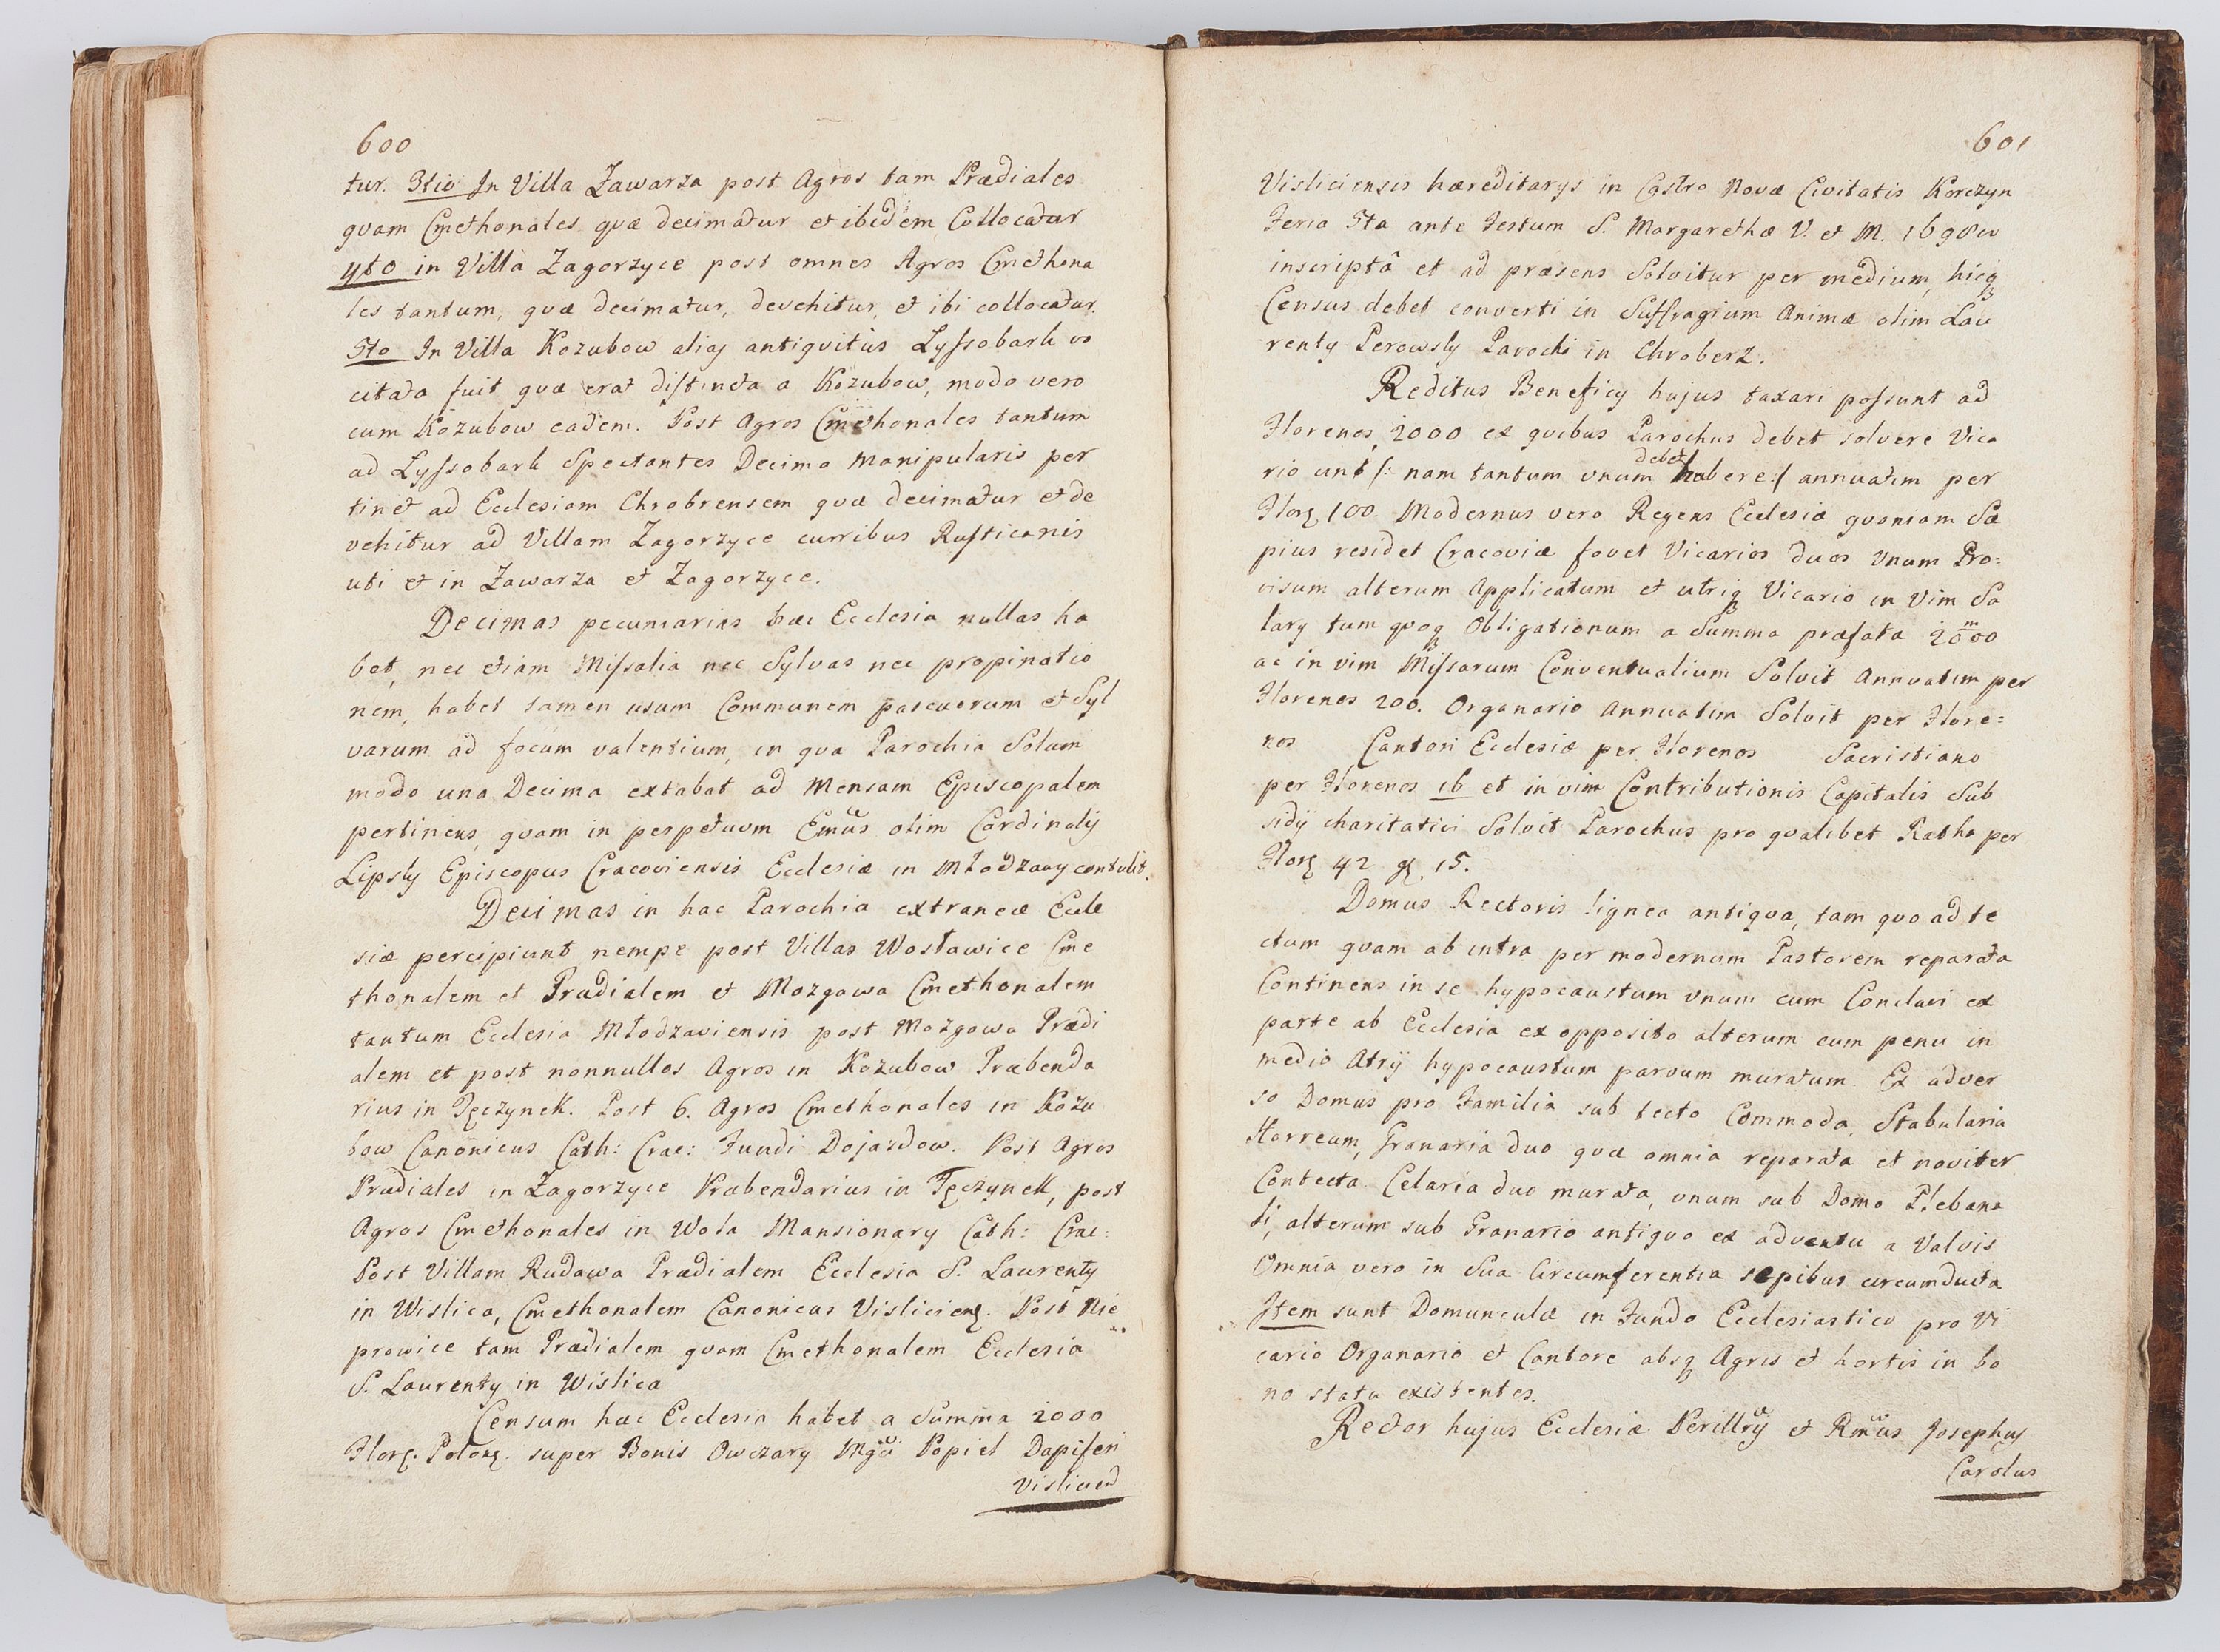 600
tur. 3tio In Villa Zawarza post Agros tam Prædiales
quam Cmethonales quæ decimatur et ibidem Collocatur
4to in Villa Zagorzyce post omnes Agros Cmethona
les tantum, quæ decimatur, devehitur, et ibi collocatur.
5to In Villa Kozubow alias antiquitùs Lyssobark vo
citata fuit quæ erat distincta a Kozubow, modo vero
cum Kozubow eadem. Post Agros Cmethonales tantum
ad Lyssobark Spectantes Decima Manipularis per
tinet ad Ecclesiam Chrobrensem quæ decimatur et de
vehitur ad Villam Zagorzyce curribus Rusticanis
uti et in Zawarza et Zagorzyce.
Decimas pecuniarias hæc Ecclesia nullas ha
bet, nec etiam Missalia nec Sylvas nec propinatio
nem, habet tamen usum Communem pascuorum et Syl
varum ad focum valentium, in qua Parochia Solum
modo una Decima extabat ad Mensam Episcopalem
pertinens, quam in perpetuum Emus olim Cardinalis
Lipsky Episcopus Cracoviensis Ecclesiæ in Młodzawy contulit.
Decimas in hac Parochia extraneæ Eccle
siæ percipiunt nempe post Villas Wosławice Cme
thonalem et Prædialem et Mozgawa Cmethonalem
tantum Ecclesia Młodzaviensis post Mozgawa Prædi
alem et post nonnullos Agros in Kozubow Præbenda
rius in Tęczynek. Post 6. Agros Cmethonales in Kozu
bow Canonicus Cath: Crac: Fundi Dojazdow. Post Agros
Prædiales in Zagorzyce Præbendarius in Tęczynek, post
Agros Cmethonales in Wola Mansionary Cath: Crac:
Post Villam Rudawa Prædialem Ecclesia S. Laurenty
in Wislica, Cmethonalem Canonicus Vislicien. Post Nie
prowice tam Prædialem quam Cmethonalem Ecclesia
S. Laurenty in Wislica
Censum hæc Ecclesia habet a Summa 2000
Flor. Polon. super Bonis Owczary Mgci Popiel Dapiferi
Vislicien
601
Visliciensis hæreditarys in Castro Novæ Civitatis Korczyn
Feria 5ta ante Festum S. Margarethæ V. et M. 1698vo
inscriptâ et ad præsens Solvitur per medium, hicq
Census debet converti in Suffragium Animæ olim Lau
renty Perowsky Parochi in Chroberz.
Reditus Beneficy hujus taxari possunt ad
Florenos 2000 ex quibus Parochus debet solvere Vica
rio uni /: nam tantum unum debet habere :/ annuatim per
Flor 100 Modernus vero Regens Ecclesiæ quoniam Sæ
pius residet Cracoviæ fovet Vicarios duos Unum Pro:
visum alterum Applicatum et utriq Vicario in Vim Sa
lary tum quoq Obligationum a Summa præfata 2000
ac in vim Missarum Conventualium Solvit Annuatim per
Florenos 200. Organario Annuatim Solvit per Flore:
nos Cantori Ecclesiæ per Florenos Sacristiano
per Florenos 16 et in vim Contributionis Capitalis Sub
sidy charitativi Solvit Parochus pro qualibet Ratha per
Flor 42 g. 15.
Domus Rectoris lignea antiqua, tam quo ad te
ctum quam ab intra per modernum Pastorem reparata
Continens in se hypocaustum unum cum Conclavi ex
parte ab Ecclesia ex opposito alterum cum penu in
medio Atrij hypocaustum parvum muratum. Ex adver
so Domus pro Familia sub tecto Commoda, Stabularia
Horreum, Granaria duo quæ omnia reparata et noviter
Contecta. Celaria duo murata, unum sub Domo Plebana
li, alterum sub Granario antiquo ex adventu a Valvis
Omnia vero in Sua Circumferentia sepibus circumducta
Item sunt Domunculæ in Fundo Ecclesiastico pro Vi
cario Organario et Cantore absq Agris et hortis in bo
no statu existentes.
Rector hujus Ecclesiæ Perillris et Rmus Josephus
Carolus